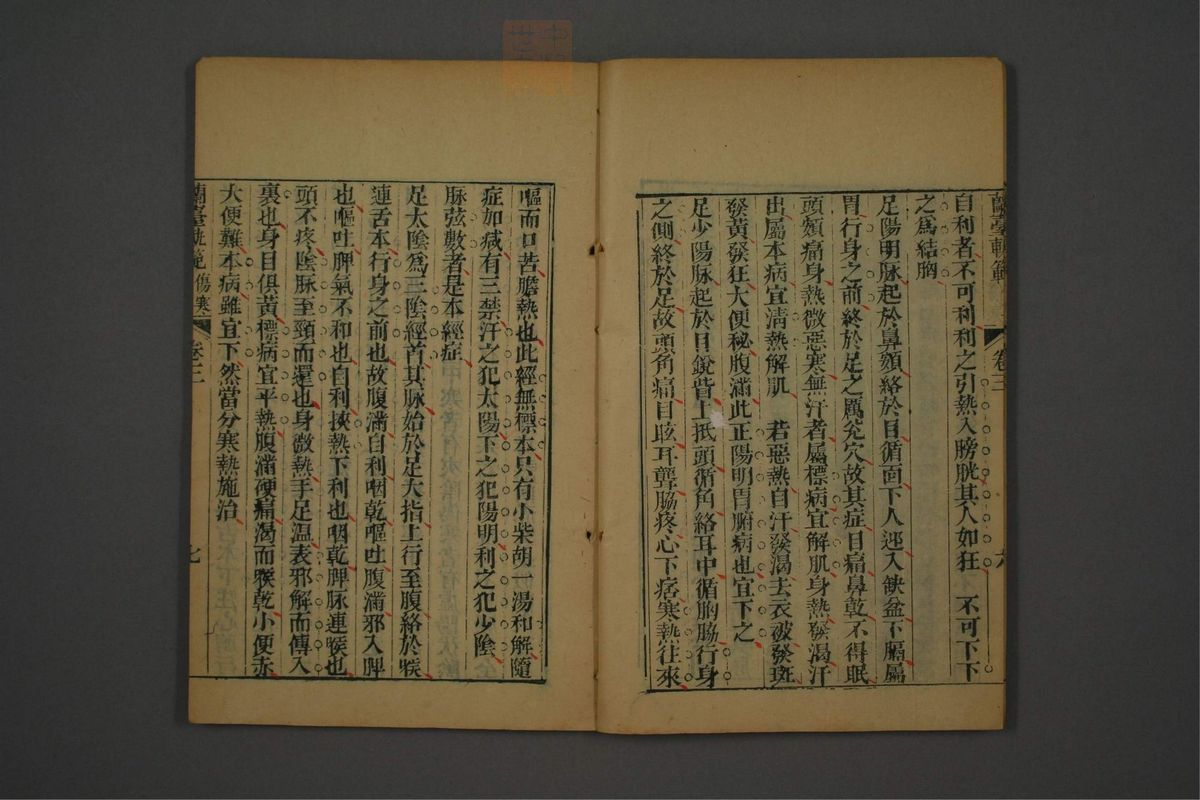 蘭臺軌範
卷三
六
自利者不可利利之引熱入膀胱其人如狂 不可下下
之爲結胸
足陽明脉起於鼻頞絡於目循面下人迎入缺盆下膈屬
胃行身之前終於足之厲兌穴故其症目痛鼻乾不得眠
頭頰痛身熱微惡寒無汗者屬標病宜解肌身熱發渴汗
出屬本病宜淸熱解肌 若惡熱自汗發渴去衣被發斑
發黃發狂大便秘腹滿此正陽明胃腑病也宜下之
足少陽脉起於目銳眥上抵頭循角絡耳中循胸脇行身
之側終於足故頭角痛目眩耳聾脇疼心下痞寒熱往來
嘔而口苦膽熱也此經無標本只有小柴胡一湯和解隨
症加减有三禁汗之犯太陽下之犯陽明利之犯少陰
脉弦數者是本經症
足太陰爲三陰經首其脉始於足大指上行至腹絡於喉
連舌本行身之前也故腹滿自利咽乾嘔吐腹滿邪入脾
也嘔吐脾氣不和也自利挾熱下利也咽乾脾脉連喉也
頭不疼陰脉至頸而還也身微熱手足溫表邪解而傳入
裏也身目俱黃標病宜平熱腹滿硬痛渴而喉乾小便赤
大便難本病雖宜下然當分寒熱施治
蘭臺軌範 傷寒
卷三
七